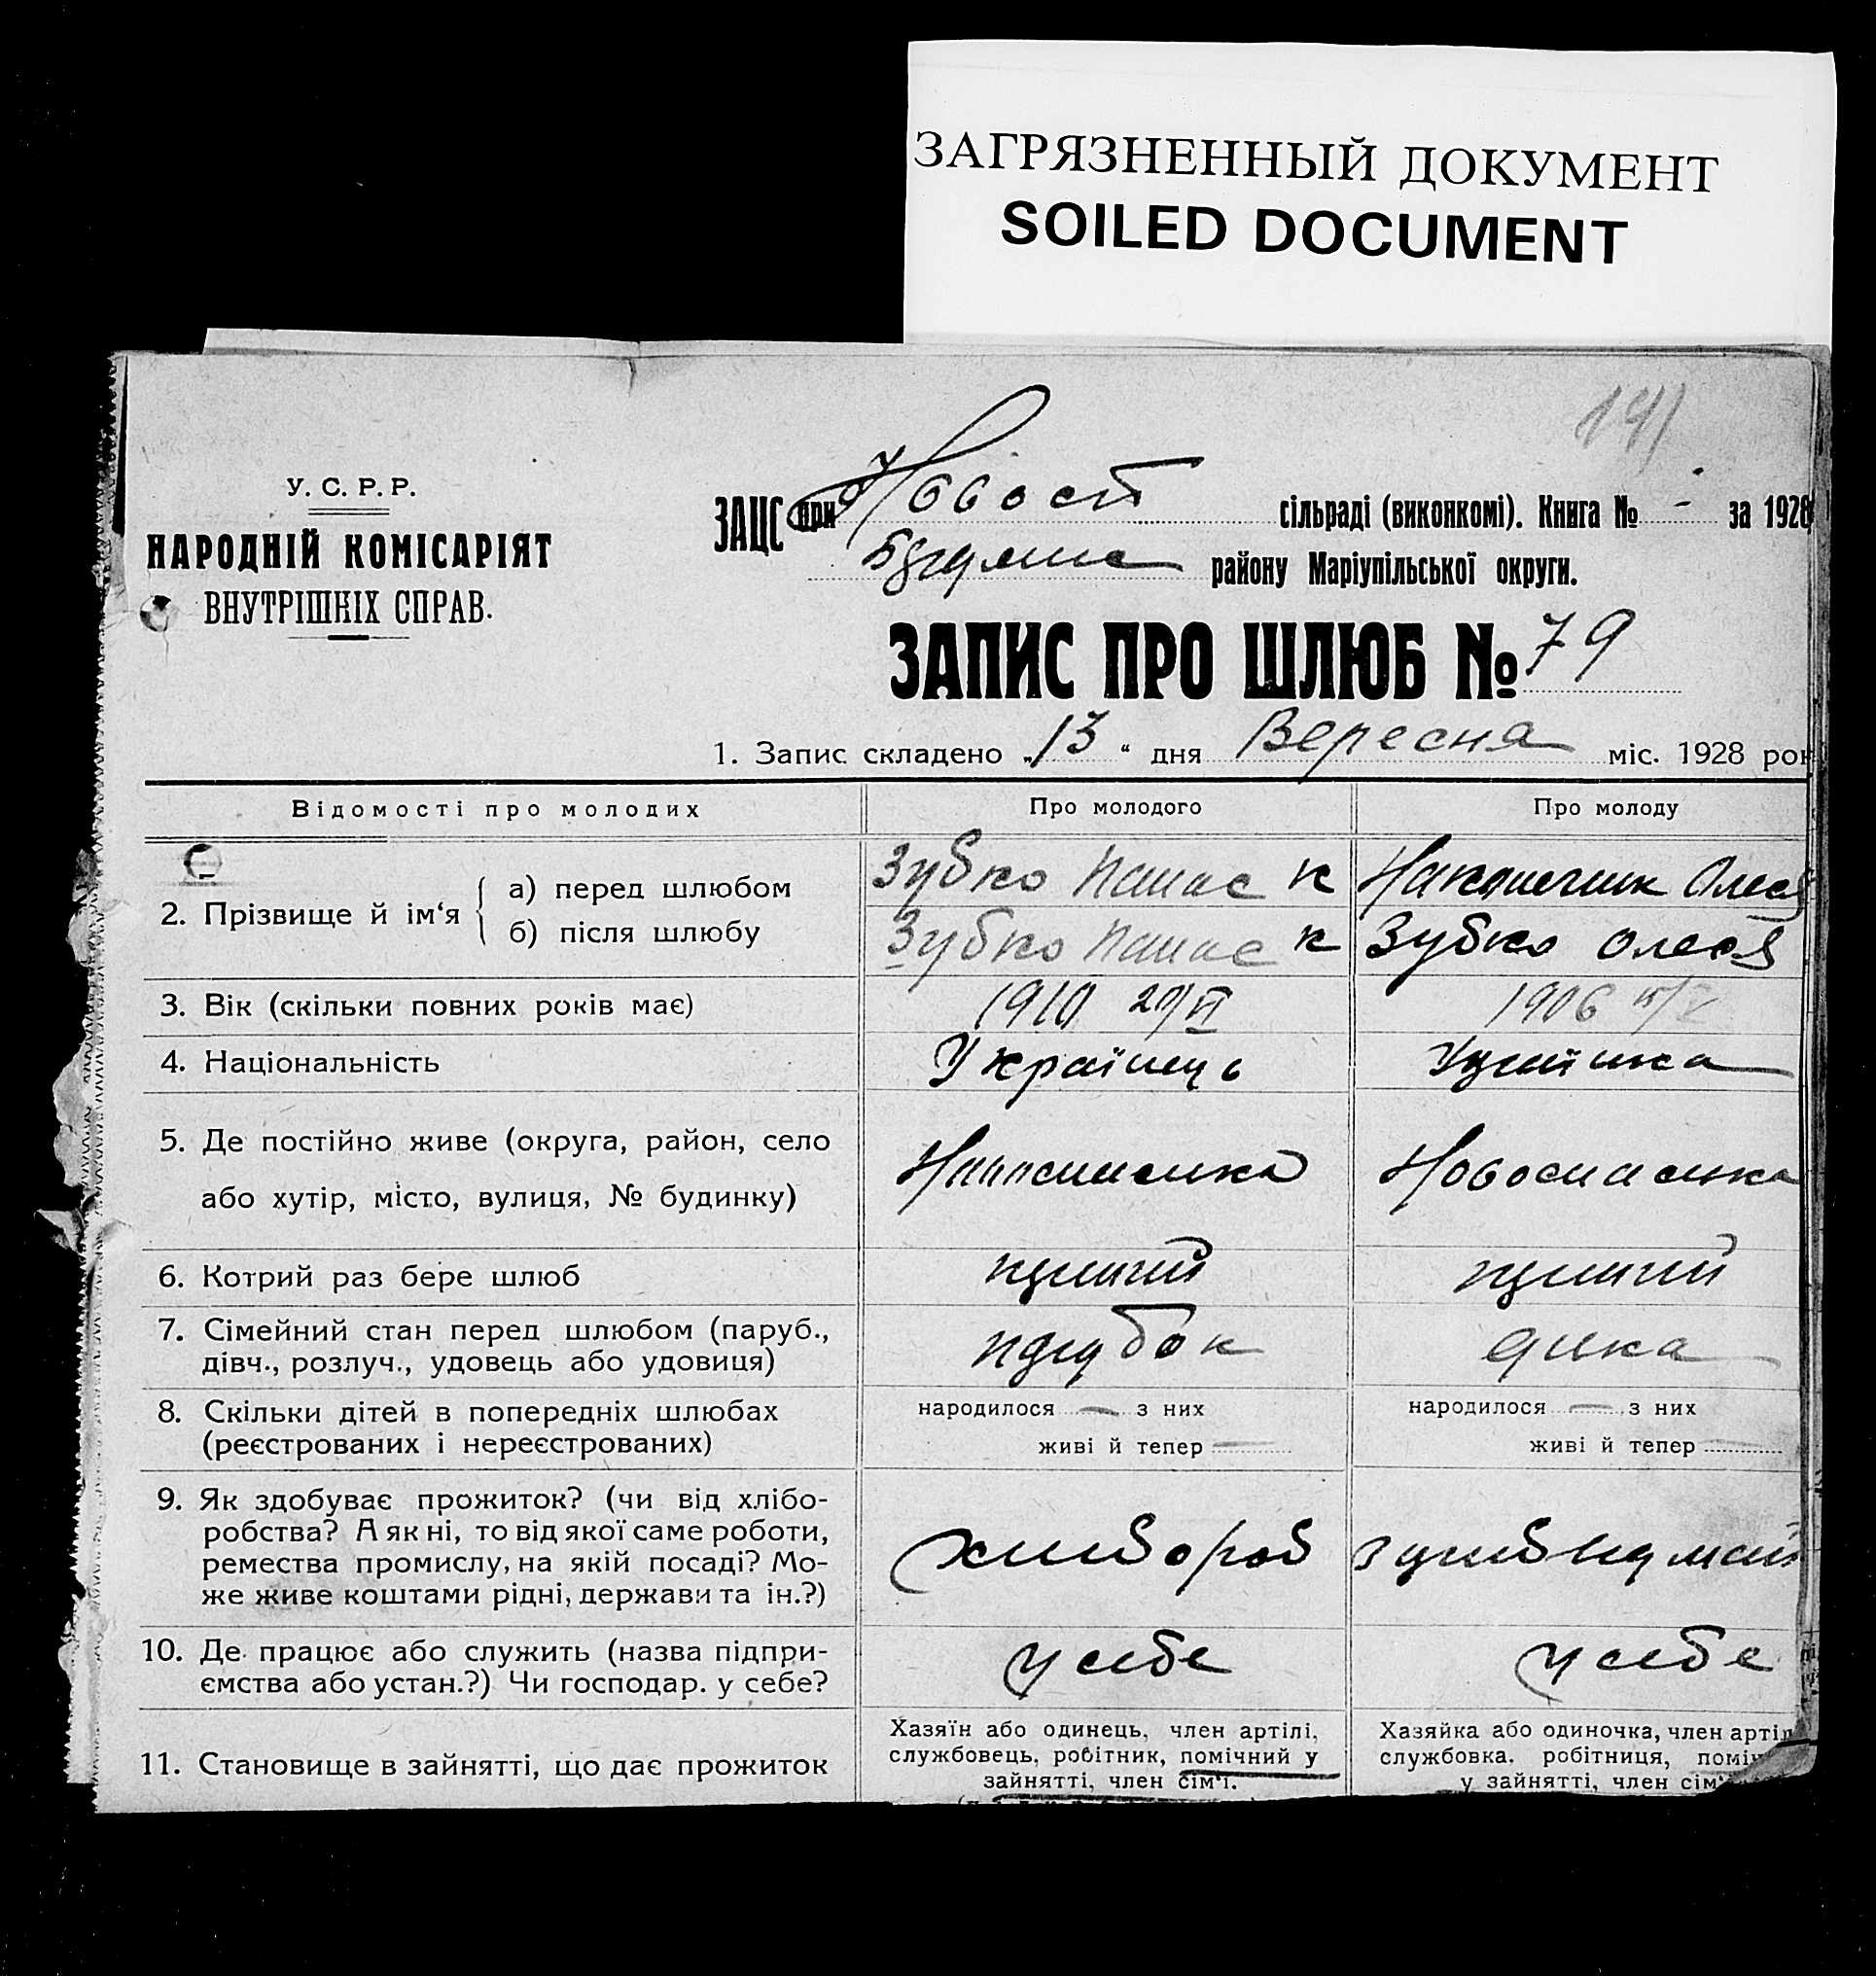 ЗАГРЯЗНЕННЫЙ ДОКУМЕНТ
SOILED DOCUMENT
У. С. Р. Р.
НАРОДНІЙ КОМІСАРІЯТ
ВНУТРІШНІХ СПРАВ.
ЗАЦС при сільраді (виконкомі). Книга № - за 1928
району Маріупільської округи.
ЗАПИС ПРО ШЛЮБ № 79
1. Запис складено „13“ дня Вересня міс. 1928 рок
Відомості про молодих Про молодого Про молоду
2. Прізвище й ім‘я
а) перед шлюбом Зубко Панас К Олеся
б) після шлюбу Зубко Панас К Зубко Олеся
3. Вік (скільки повних років має) 1910 1906
4. Національність Українець
5. Де постійно живе (округа, район, село
або хутір, місто, вулиця, № будинку)
6. Котрий раз бере шлюб
7. Сімейний стан перед шлюбом (паруб.,
дівч., розлуч., удовець або удовиця) парубок
8. Скільки дітей в попередніх шлюбах народилося — з них народилося — з них
(реєстрованих і нереєстрованих) живі й тепер — живі й тепер
9. Як здобуває прожиток? (чи від хлібо-
робства? А як ні, то від якої саме роботи,
ремества промислу, на якій посаді? Мо- хлибороб
же живе коштами рідні, держави та ін.?)
10. Де працює або служить (назва підпри- у себе у себе
ємства або устан.?) Чи господар. у себе?
11. Становище в зайнятті, що дає прожиток
Хазяїн або одинець, член артілі,
службовець, робітник, помічний у
зайнятті, член сім‘ї.
Хазяйка або одиночка, член артіл
службовка. робітниця, поміч
у зайнятті, член сім‘